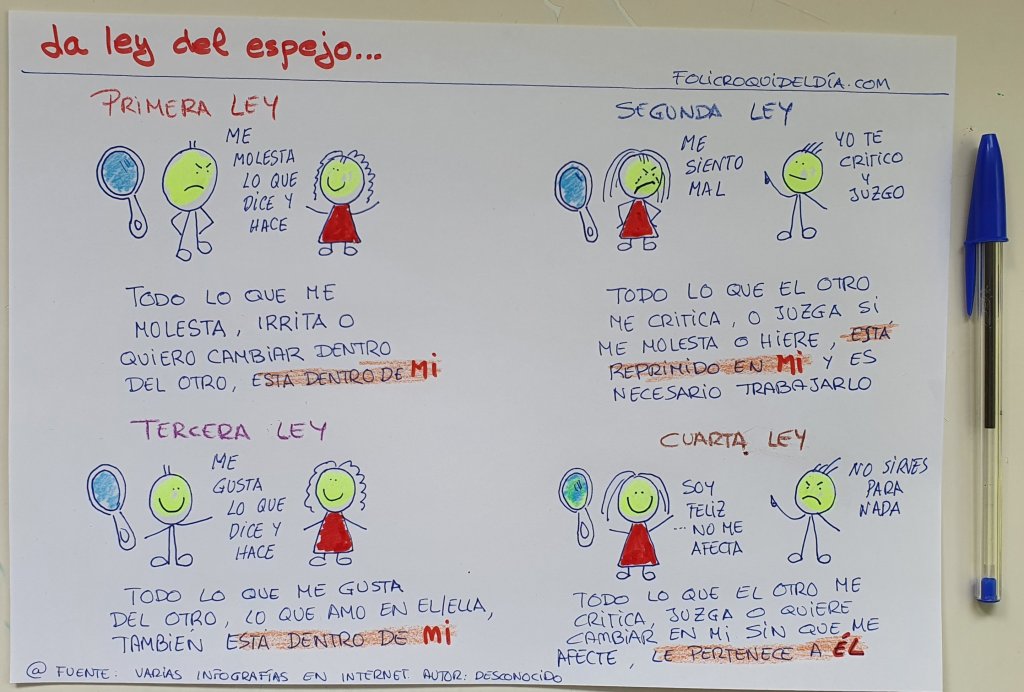 La ley del espejo...
FOLICROQUIDELDÍA.COM
PRIMERA LEY
ME
MOLESTA
LO QUE
DICE Y
HACE
TODO LO QUE ME
MOLESTA, IRRITA O
QUIERO CAMBIAR DENTRO
DEL OTRO, ESTA DENTRO DE MI
SEGUNDA LEY
ME
SIENTO
MAL
YO TE
CRITICO
Y
JUZGO
TODO LO QUE EL OTRO
ME CRITICA, O JUZGA SI
ME MOLESTA O HIERE, ESTÁ
REPRIMIDO EN MI Y ES
NECESARIO TRABAJARLO
TERCERA LEY
ME
GUSTA
LO QUE
DICE Y
HACE
TODO LO QUE ME GUSTA
DEL OTRO, LO QUE AMO EN EL/ELLA,
TAMBIÉN ESTA DENTRO DE MI
CUARTA LEY
SOY
FELIZ
...NO ME
AFECTA
NO SIRVES
PARA
NADA
TODO LO QUE EL OTRO ME
CRITICA, JUZGA O QUIERE
CAMBIAR EN MI SIN QUE ME
AFECTE, LE PERTENECE A ÉL
@ FUENTE: VARIAS INFOGRAFÍAS EN INTERNET. AUTOR: DESCONOCIDO